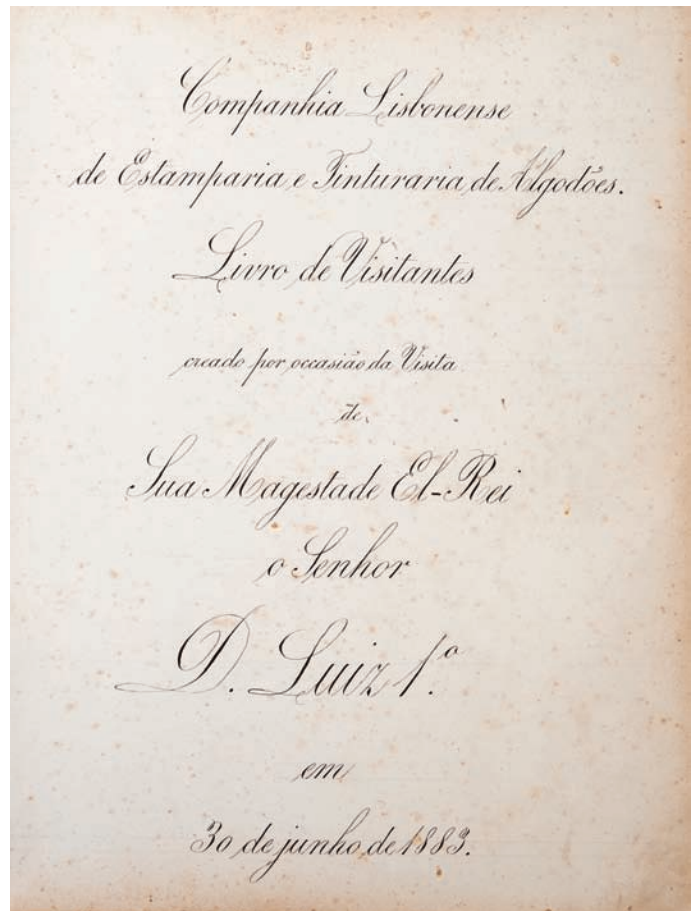 Companhia Lisbonense
de Estamparia e Tinturaria de Algodões.
Livro de Visitantes
creado por occasião da Visita
de
Sua Magestade El-Rei
o Senhor
D. Luiz 1.º
em
30 de junho de 1883.